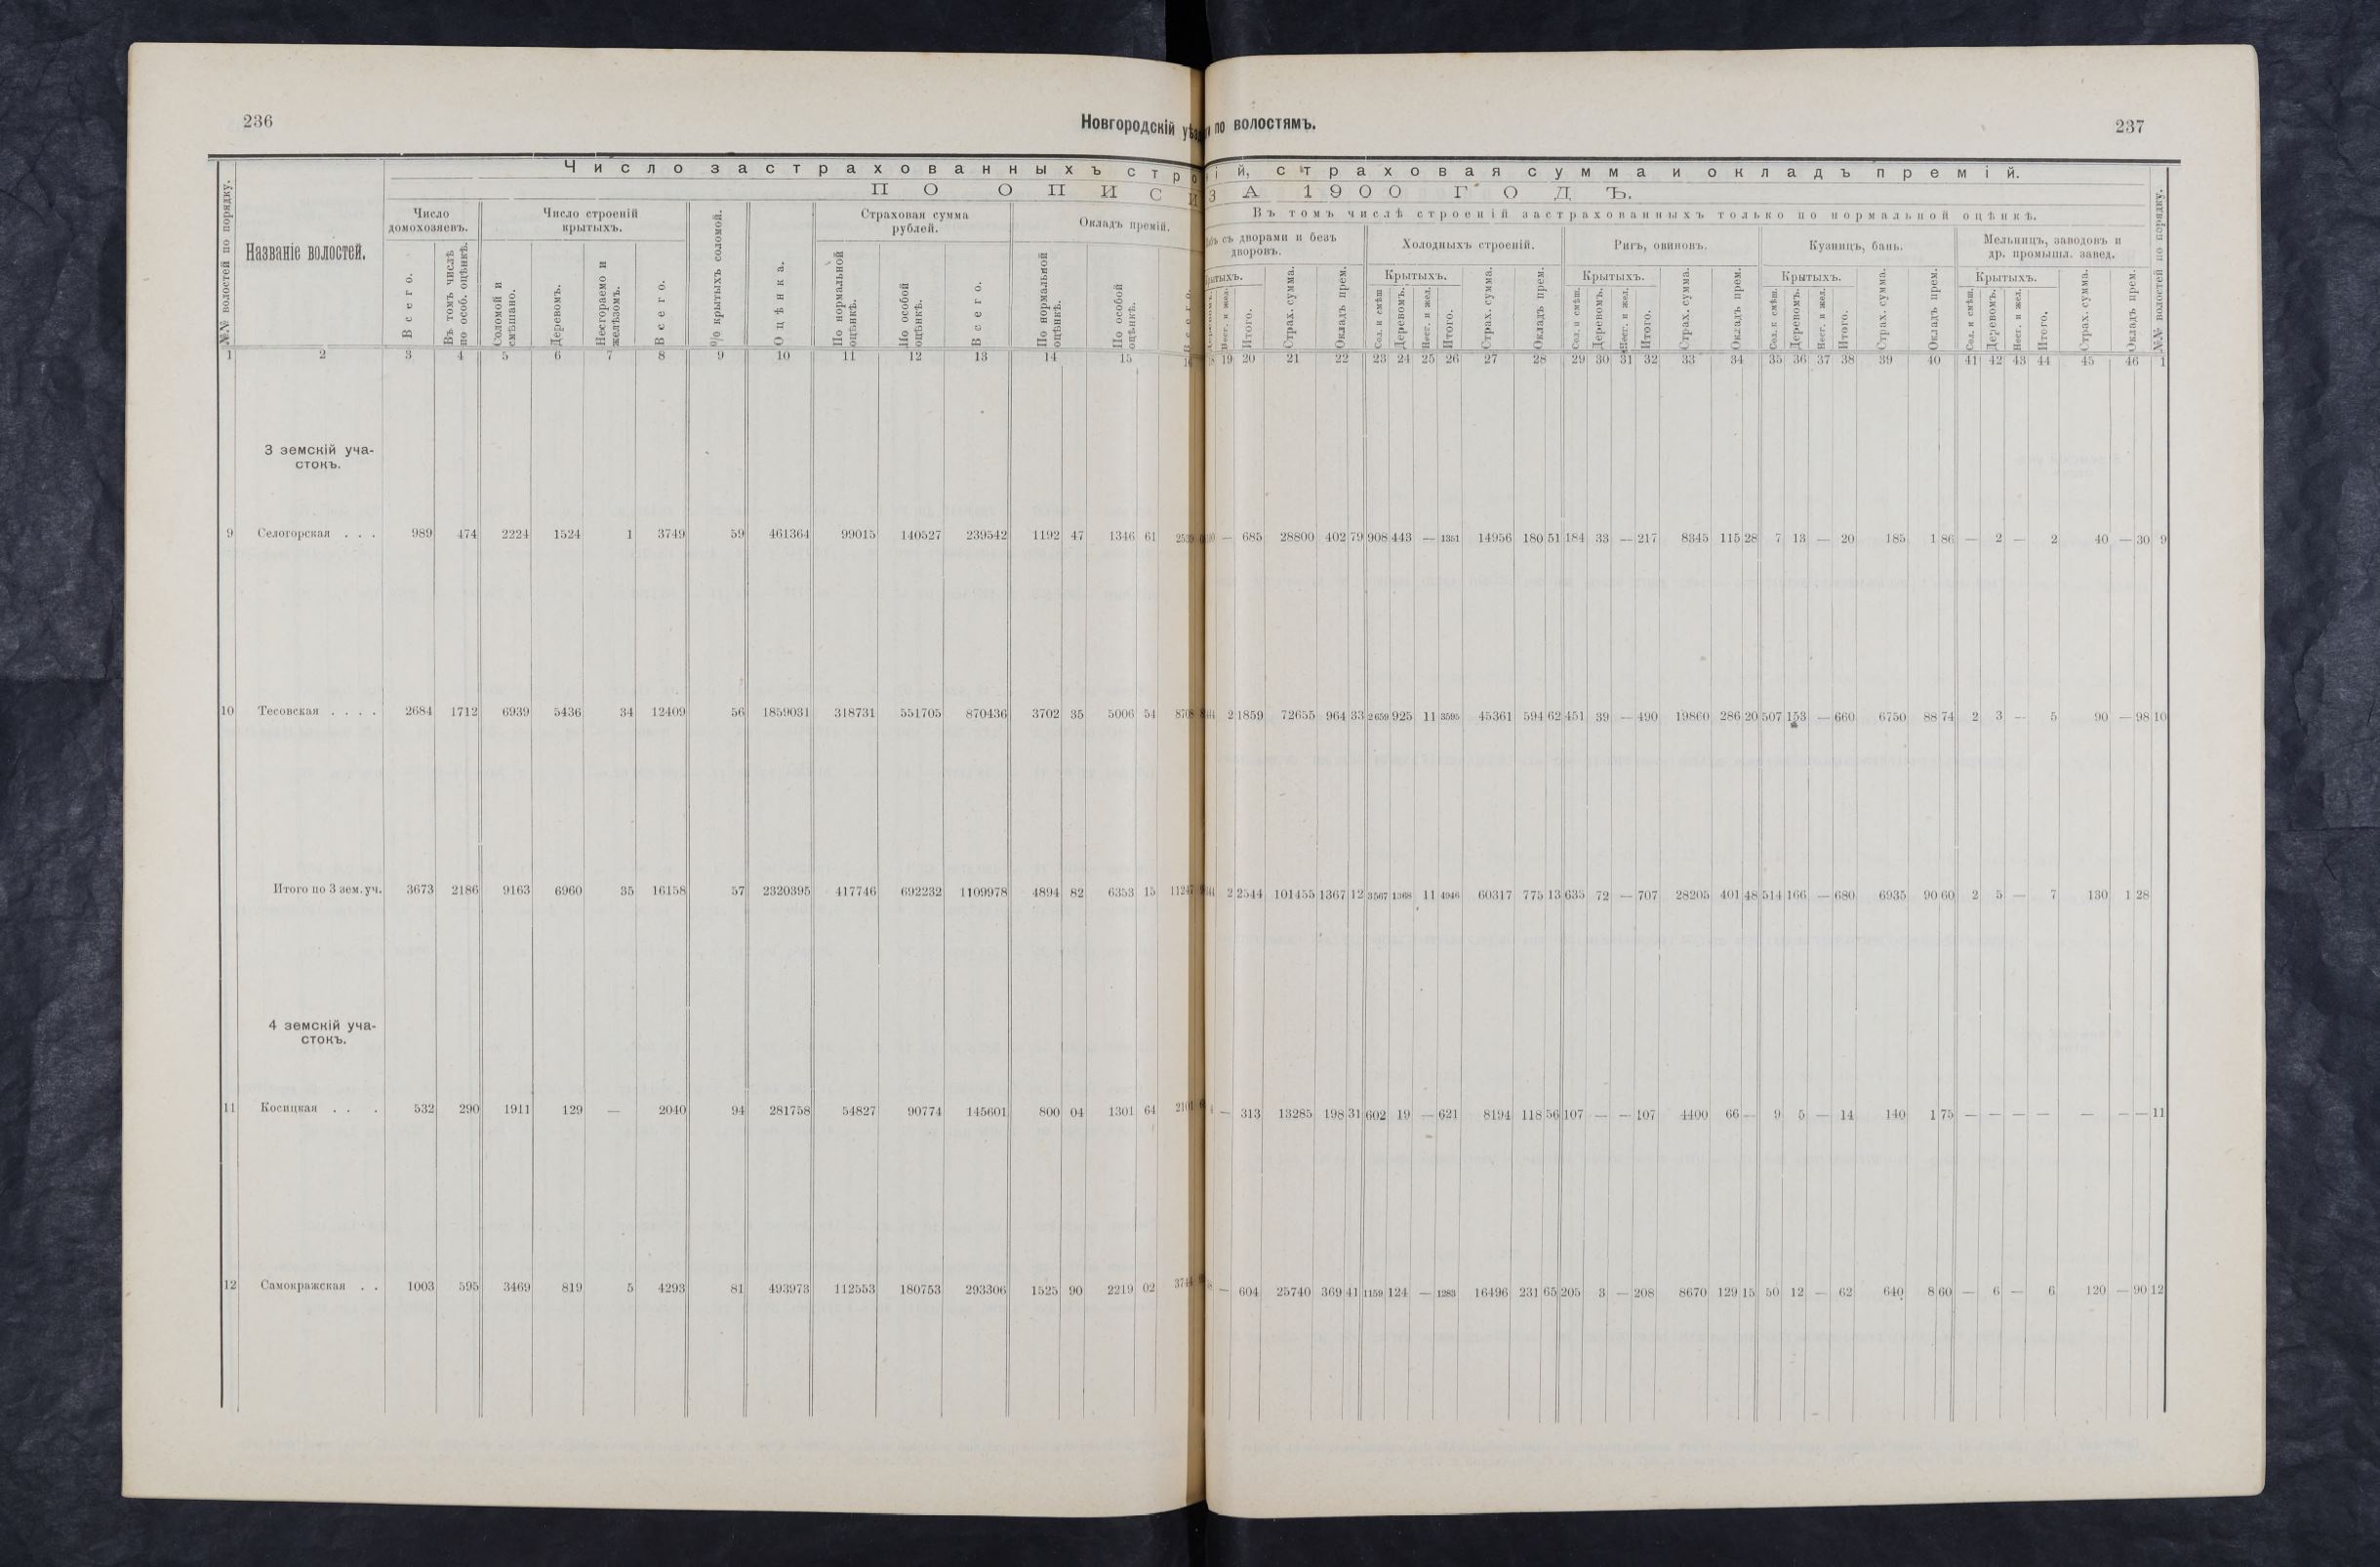 236
Новгородскій
по волостямъ.
237
Число застрахованныхъ стро
ій, страховая сумма и окладъ премій.
ПО ОПИСИ
ЗА 1900 ГОДЪ.
№№ волостей по порядку.
Названіе волостей.
Число домохозяевъ.
Всего.
Въ томъ числѣ по особ. оцѣнкѣ.
Число строеній крытыхъ.
Соломой и смѣшано.
Деревомъ.
Несгораемо и желѣзомъ.
Всего.
% крытыхъ соломой.
Оцѣнка.
Страховая сумма рублей.
По нормальной оцѣнкѣ.
По особой оцѣнкѣ.
Всего.
Окладъ премій.
По нормальной оцѣнкѣ.
По особой оцѣнкѣ.
Въ томъ числѣ строеній застрахованныхъ только по нормальной оцѣнкѣ.
съ дворами и безъ дворовъ.
Нест. и жел.
Итого.
Страх. сумма.
Окладъ прем.
Холодныхъ строеній.
Крытыхъ.
Сол. и смѣш.
Деревомъ.
Несг. и жел.
Итого.
Страх. сумма.
Окладъ прем.
Ригъ, овиновъ.
Крытыхъ.
Сол. и смѣш.
Деревомъ.
Несг. и жел.
Итого.
Страх. сумма.
Окладъ прем.
Кузницъ, бань.
Крытыхъ.
Сол. и смѣш.
Деревомъ.
Несг. и жел.
Итого.
Страх. сумма.
Окладъ прем.
Мельницъ, заводовъ и др. промышл. завед.
Крытыхъ.
Сол. и смѣш.
Деревомъ.
Несг. и жел.
Итого.
Страх. сумма.
Окладъ прем.
№№ волостей по порядку.
1 2 3 4 5 6 7 8 9 10 11 12 13 14 15
19 20 21 22 23 24 25 26 27 28 29 30 31 32 33 34 35 36 37 38 39 40 41 42 43 44 45 46 1
3 земскій уча-
стокъ.
9 Селогорская . . . 989 474 2224 1524 1 3749 59 461364 99015 140527 239542 1192 47 1346 61
— 685 28800 402 79 908 443 — 1351 14956 180 51 184 33 — 217 8345 115 28 7 13 — 20 185 1 86 — 2 — 2 40 — 30 9
10 Тесовская . . . . 2684 1712 6939 5436 34 12409 56 1859031 318731 551705 870436 3702 35 5006 54
2 1859 72655 964 33 2659 925 11 3595 45361 594 62 451 39 — 490 19860 286 20 507 153 — 660 6750 88 74 2 3 — 5 90 — 98 10
Итого по 3 зем. уч. 3673 2186 9163 6960 35 16158 57 2320395 417746 692232 1109978 4894 82 6353 15
2 2544 101455 1367 12 3567 1368 11 4946 60317 775 13 635 72 — 707 28205 401 48 514 166 — 680 6935 90 60 2 5 — 7 130 1 28
4 земскій уча-
стокъ.
11 Косицкая . . . 532 290 1911 129 — 2040 94 281758 54827 90774 145601 800 04 1301 64
— 313 13285 198 31 602 19 — 621 8194 118 56 107 — — 107 4400 66 — 9 5 — 14 140 1 75 — — — — — — — 11
12 Самокражская . . 1003 595 3469 819 5 4293 81 493973 112553 180753 293306 1525 90 2219 02
— 604 25740 369 41 1159 124 — 1283 16496 231 65 205 3 — 208 8670 129 15 50 12 — 62 640 8 60 — 6 — 6 120 — 90 12